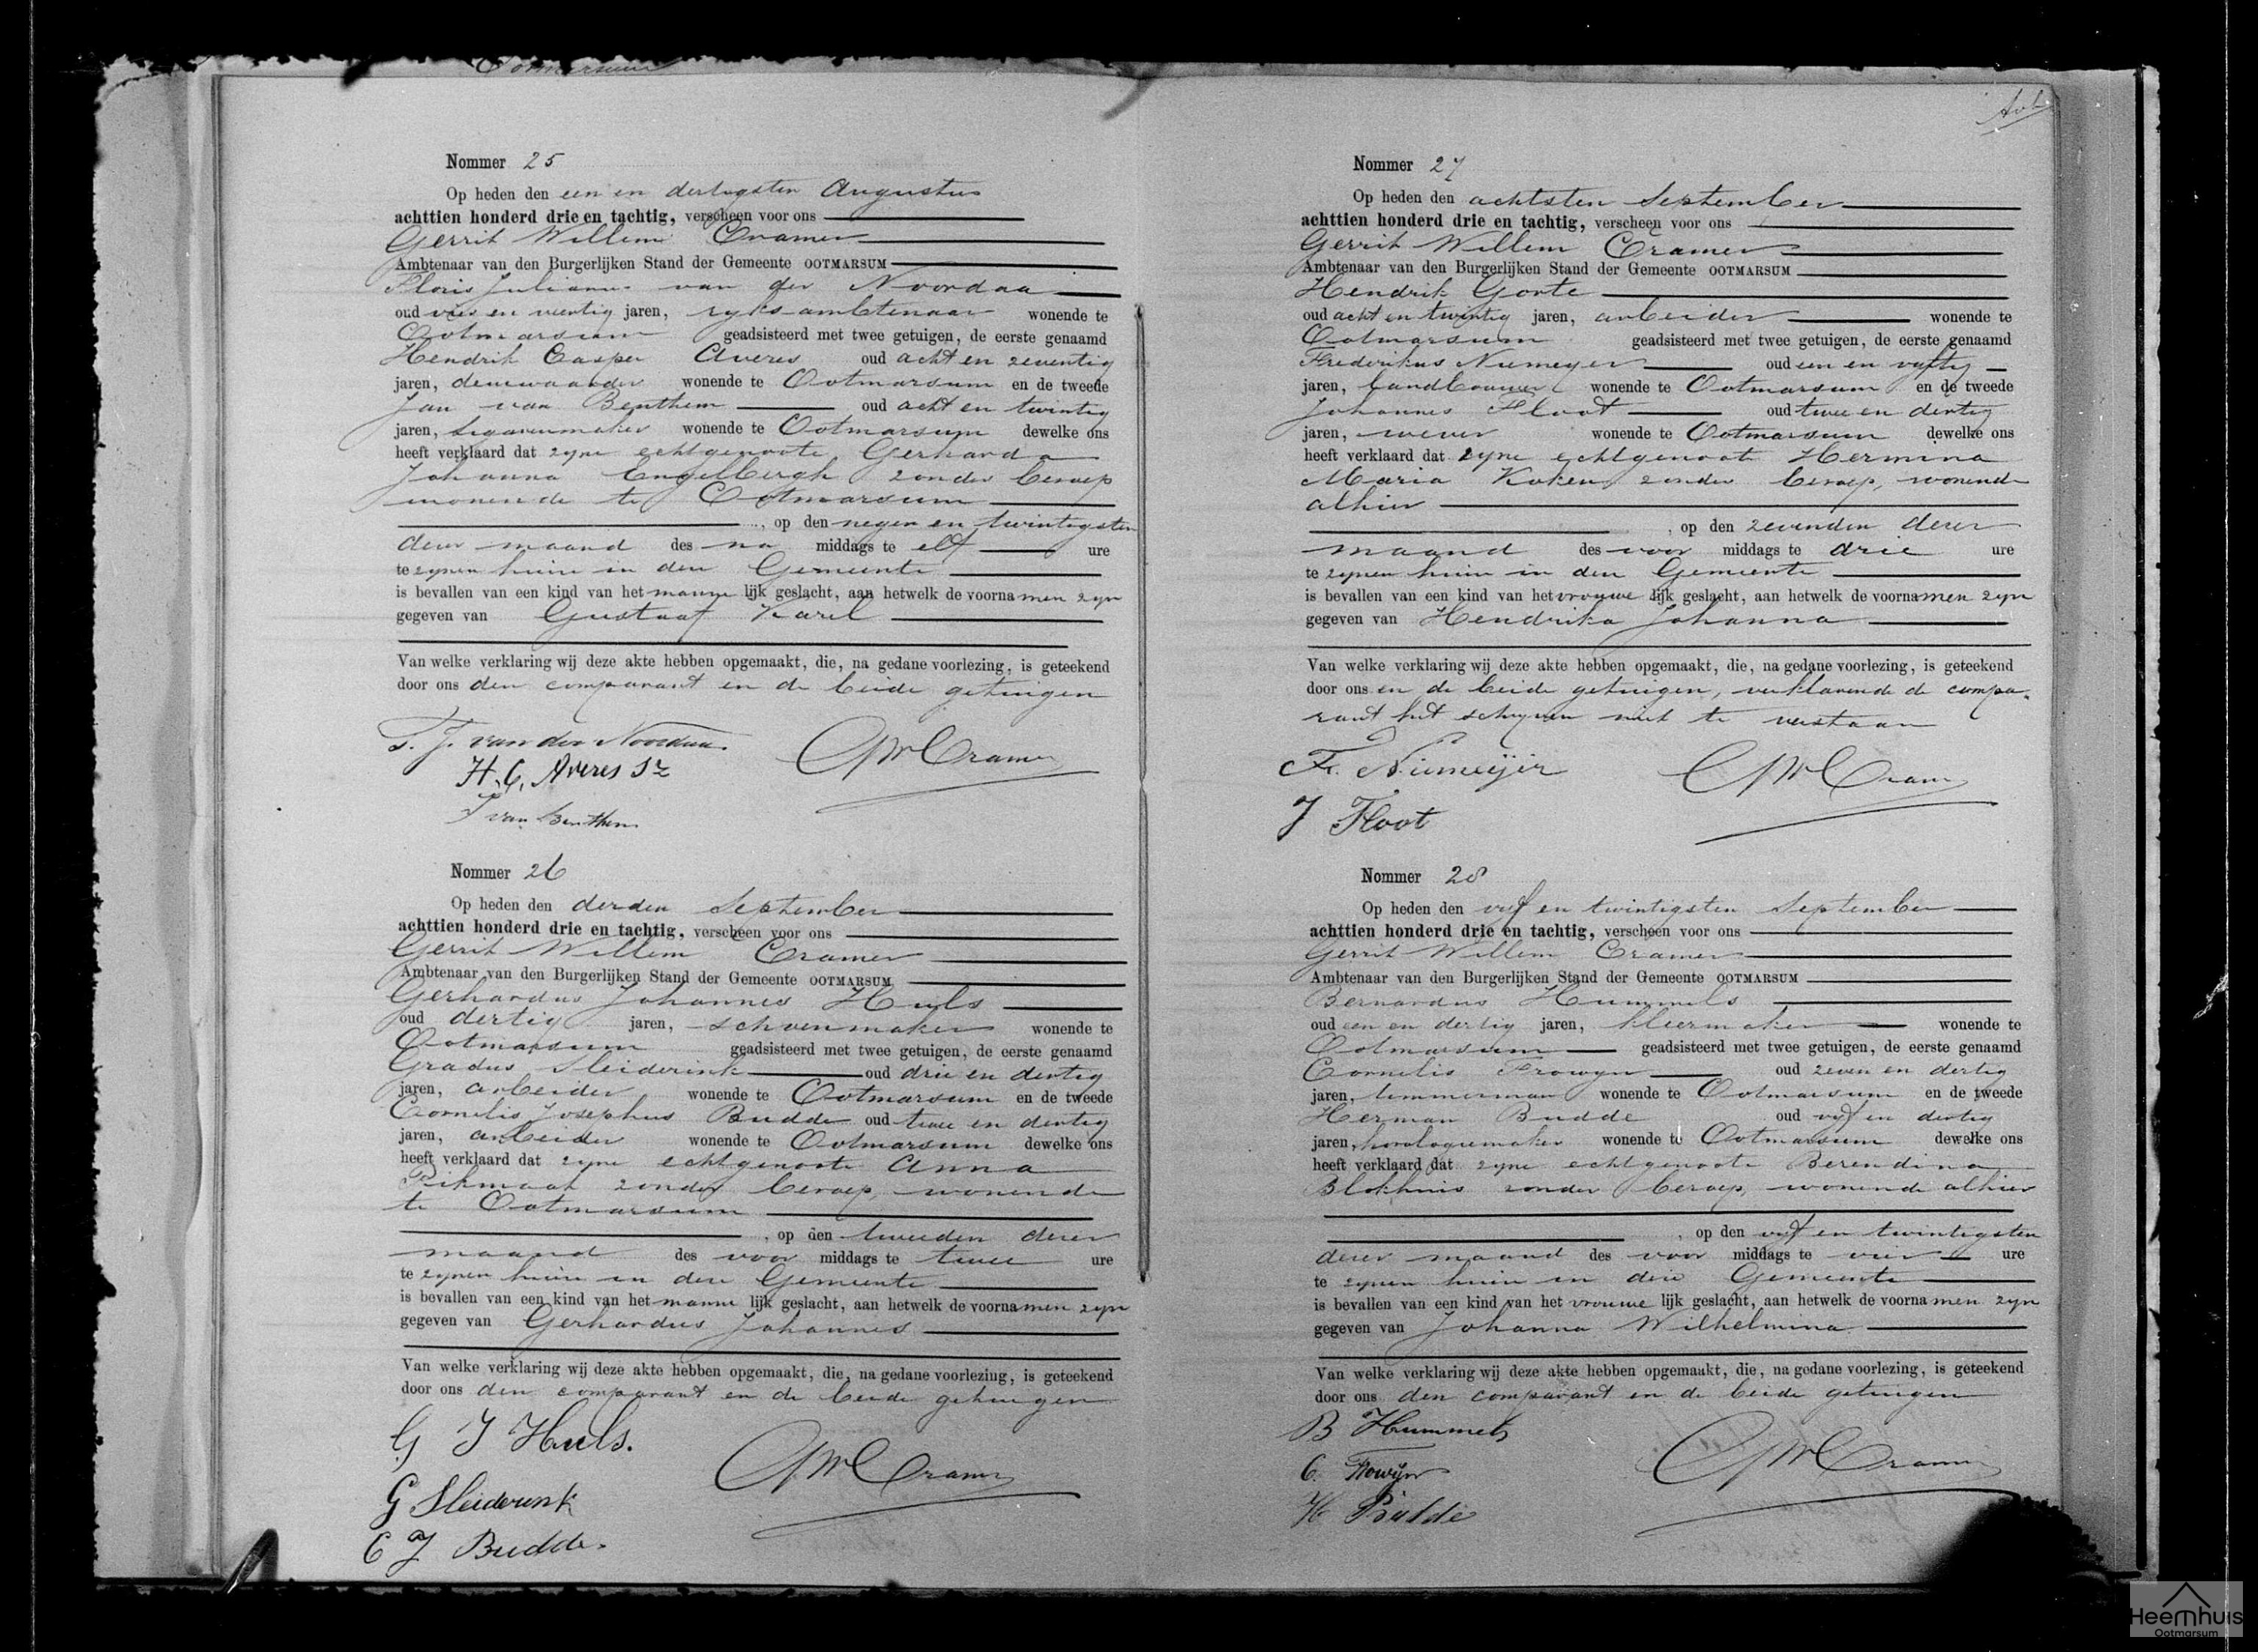 Ootmarsum
Nommer 25
Op heden den een en dertigsten Augustus
achttien honderd drie en tachtig, verscheen voor ons
Gerrit Willem Cramer
Ambtenaar van den Burgerlijken Stand der Gemeente OOTMARSUM
Floris Julianus van der Noordaa
oud vier en veertig jaren, ryksambtenaar wonende te
Ootmarsum geadsisteerd met twee getuigen, de eerste genaamd
Hendrik Casper Averes oud acht en zeventig
jaren, deurwaarder wonende te Ootmarsum en de tweede
Jan van Benthem oud acht en twintig
jaren, sigarenmaker wonende te Ootmarsum dewelke ons
heeft verklaard dat zyne echtgenoote Gerharda
Johanna Engelbergh zonder beroep
wonende te Ootmarsum
, op den negen en twintigsten
dezer maand des na middags te elf ure
te zynen huize in deze Gemeente
is bevallen van een kind van het manne lijk geslacht, aan hetwelk de voornamen zyn
gegeven van Gustaaf Karel
Van welke verklaring wij deze akte hebben opgemaakt, die, na gedane voorlezing, is geteekend
door ons den comparant en de beide getuigen
F. J. van der Noordaa. GWCramer
H. C. Averes Sz
J van Benthem
Nommer 26
Op heden den derden September
achttien honderd drie en tachtig, verscheen voor ons
Gerrit Willem Cramer
Ambtenaar van den Burgerlijken Stand der Gemeente OOTMARSUM
Gerhardus Johannes Huls
oud dertig jaren, schoenmaker wonende te
Ootmarsum geadsisteerd met twee getuigen, de eerste genaamd
Gradus Sleiderink oud drie en dertig
jaren, arbeider wonende te Ootmarsum en de tweede
Cornelis Josephus Budde oud twee en dertig
jaren, arbeider wonende te Ootmarsum dewelke ons
heeft verklaard dat zyne echtgenoote Anna
Pikmaat zonder beroep, wonende
te Ootmarsum
, op den tweeden dezer
maand des voor middags te twee ure
te zynen huize in deze Gemeente
is bevallen van een kind van het manne lijk geslacht, aan hetwelk de voornamen zyn
gegeven van Gerhardus Johannes
Van welke verklaring wij deze akte hebben opgemaakt, die, na gedane voorlezing, is geteekend
door ons den comparant en de beide getuigen
G J Huls. GWCramer
G Sleiderink
C J Budde.
Nommer 27
Op heden den achtsten September
achttien honderd drie en tachtig, verscheen voor ons
Gerrit Willem Cramer
Ambtenaar van den Burgerlijken Stand der Gemeente OOTMARSUM
Hendrik Gorte
oud acht en twintig jaren, arbeider wonende te
Ootmarsum geadsisteerd met twee getuigen, de eerste genaamd
Frederikus Niemeyer oud een en vyftig
jaren, landbouwer wonende te Ootmarsum en de tweede
Johannes Floot oud twee en dertig
jaren, wever wonende te Ootmarsum dewelke ons
heeft verklaard dat zyne echtgenoote Hermina
Maria Koken zonder beroep, wonende
alhier
, op den zevenden dezer
maand des voor middags te drie ure
te zynen huize in deze Gemeente
is bevallen van een kind van het vrouwe lijk geslacht, aan hetwelk de voornamen zyn
gegeven van Hendrika Johanna
Van welke verklaring wij deze akte hebben opgemaakt, die, na gedane voorlezing, is geteekend
door ons en de beide getuigen, verklarende de compa-
rant het schryven niet te verstaan
Fr. Niemeijer GWCramer
J Floot
Nommer 28
Op heden den vyf en twintigsten September
achttien honderd drie en tachtig, verscheen voor ons
Gerrit Willem Cramer
Ambtenaar van den Burgerlijken Stand der Gemeente OOTMARSUM
Bernardus Hummels
oud een en dertig jaren, kleermaker wonende te
Ootmarsum geadsisteerd met twee getuigen, de eerste genaamd
Cornelis Frowyn oud zeven en dertig
jaren, timmerman wonende te Ootmarsum en de tweede
Herman Budde oud vyf en dertig
jaren, horologiemaker wonende te Ootmarsum dewelke ons
heeft verklaard dat zyne echtgenoote Berendina
Blokhuis zonder beroep, wonende alhier
, op den vyf en twintigsten
dezer maand des voor middags te vier ure
te zynen huize in deze Gemeente
is bevallen van een kind van het vrouwe lijk geslacht, aan hetwelk de voornamen zyn
gegeven van Johanna Wilhelmina
Van welke verklaring wij deze akte hebben opgemaakt, die, na gedane voorlezing, is geteekend
door ons den comparant en de beide getuigen
B Hummels GWCramer
C. Frowijn
H Budde
Heemhuis
Ootmarsum